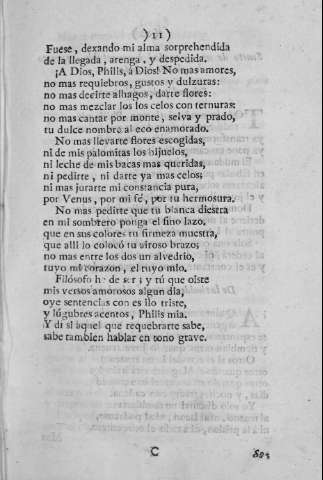 )11(
Fuese, dexando mi alma sorprehendida
de la llegada, arenga, y despedida.
¡A Dios, Philis, á Dios! No mas amores,
no mas requiebros, gustos y dulzuras:
no mas decirte alhagos, darte flores:
no mas mezclar los los celos con ternuras:
no mas cantar por monte, selva y prado,
tu dulce nombre al eco enamorado.
No mas llevarte flores escogidas,
ni de mis palomitas los hijuelos,
ni leche de mis bacas mas queridas,
ni pedirte, ni darte ya mas celos;
ni mas jurarte mi constancia pura,
por Venus, por mi fé, por tu hermosura.
No mas pedirte que tu blanca diestra
en mi sombrero ponga el fino lazo,
que en sus colores tu firmeza muestra,
que alli lo colocó tu airoso brazo;
no mas entre los dos un alvedrio,
tuyo mi corazon, el tuyo mio.
Filósofo he de ser; y tú que oiste
mis versos amorosos algun dia,
oye sentencias con estilo triste,
y lúgubres acentos, Philis mia.
Y di si aquel que requebrarte sabe,
sabe tambien hablar en tono grave.
C